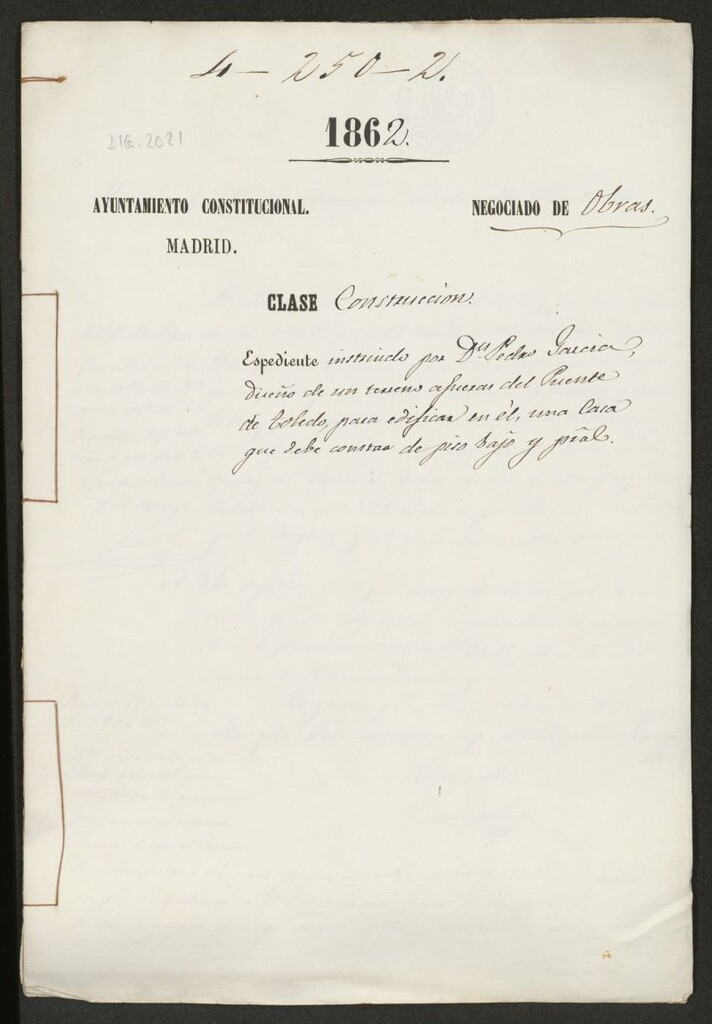 4 - 250 - 2.
DIG. 2021
1862.
AYUNTAMIENTO CONSTITUCIONAL.
NEGOCIADO DE Obras.
MADRID.
CLASE Construccion.
Espediente instruido por Dn. Pedro Garcia,
dueño de un terreno afueras del Puente
de Toledo, para edificar en él, una Casa
que debe constar de piso bajo y pral.